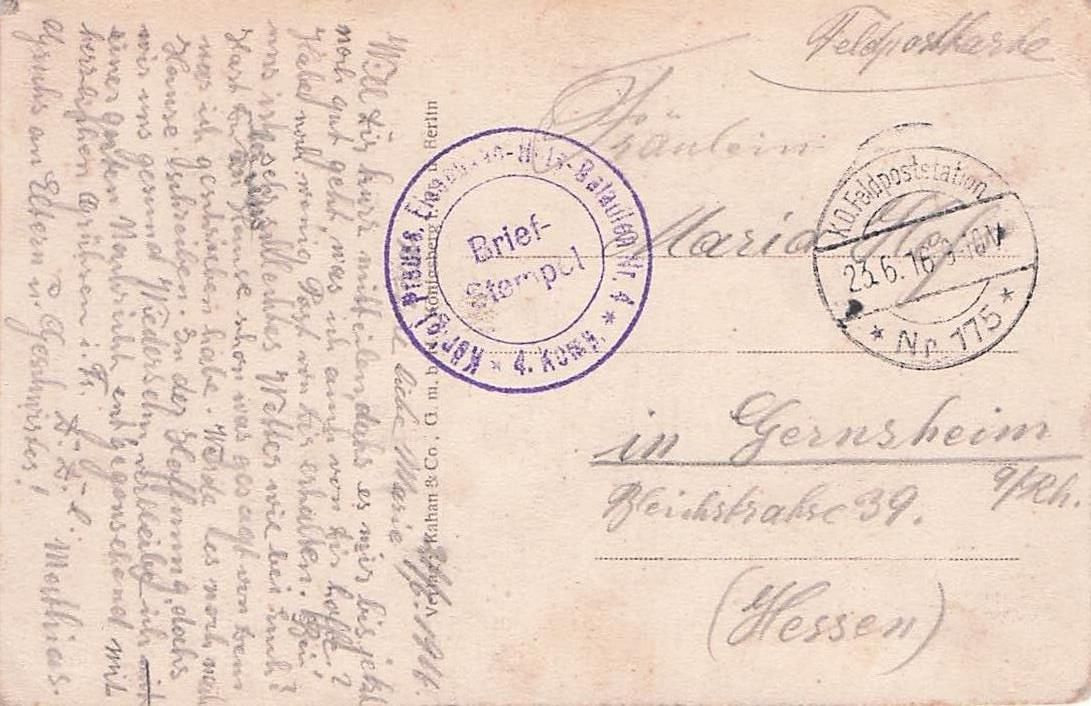 Feldpostkarte
Fräulein
Maria
in Gernsheim
a/Rh.
Bleichstrahse 39.
(Hessen)
K.D. Feldpoststation
23.6.16
* Nr. 175 *
Königl. Preuss. Eisenbahn-Bataillon Nr. 4 * 4. Komp. *
Brief-
Stempel
Kahan & Co., G. m. b. Berlin
1916.
liebe Marie
Will dir kurz mitteilen, dahs es mir bis jetzt
noch gut geht, was ich auch von dir hoffe?
Habe noch wenig Post von dir erhalten. Bei
uns ist sehr schlechtes Wetter wie bei Euch?
Hast du schon was gesagt von dem
was ich geschrieben habe. Werde des noch nach
Hause schreiben. In der Hoffnung, dahs
wir uns gesund Wiedersehn, verbleibe ich
einer guten Nachricht entgegensehend mit
herzlichen Grühsen
Gruhs an Eltern u Geschwister! Matthias.